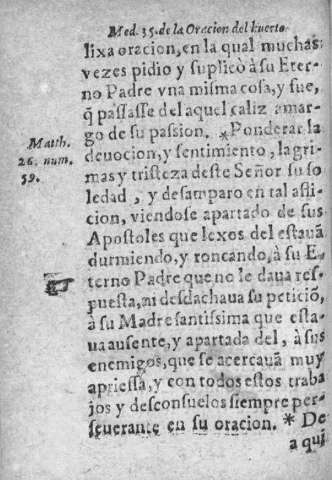 Med. 35. de la Oracion del huerto
lixa oracion, en la qual muchas
vezes pidio y suplicò à su Eter-
no Padre vna misma cosa, y fue,
q̃ passasse del aquel caliz amar-
go de su passion. *Ponderar la
Matth.
26. num.
39.
deuocion, y sentimiento, lagri-
mas y tristeza deste Señor su so
ledad, y desamparo en tal afli-
cion, viendose apartado de sus
Apostoles que lexos del estauã
durmiendo, y roncando, à su E-
terno Padre que no le daua res-
puesta, ni desdachaua su peticiõ,
à su Madre santissima que esta-
ua ausente, y apartada del, à sus
enemigos, que se acercauã muy
apriessa, y con todos estos traba
jos y desconsuelos siempre per-
seuerante en su oracion. * De
a qui